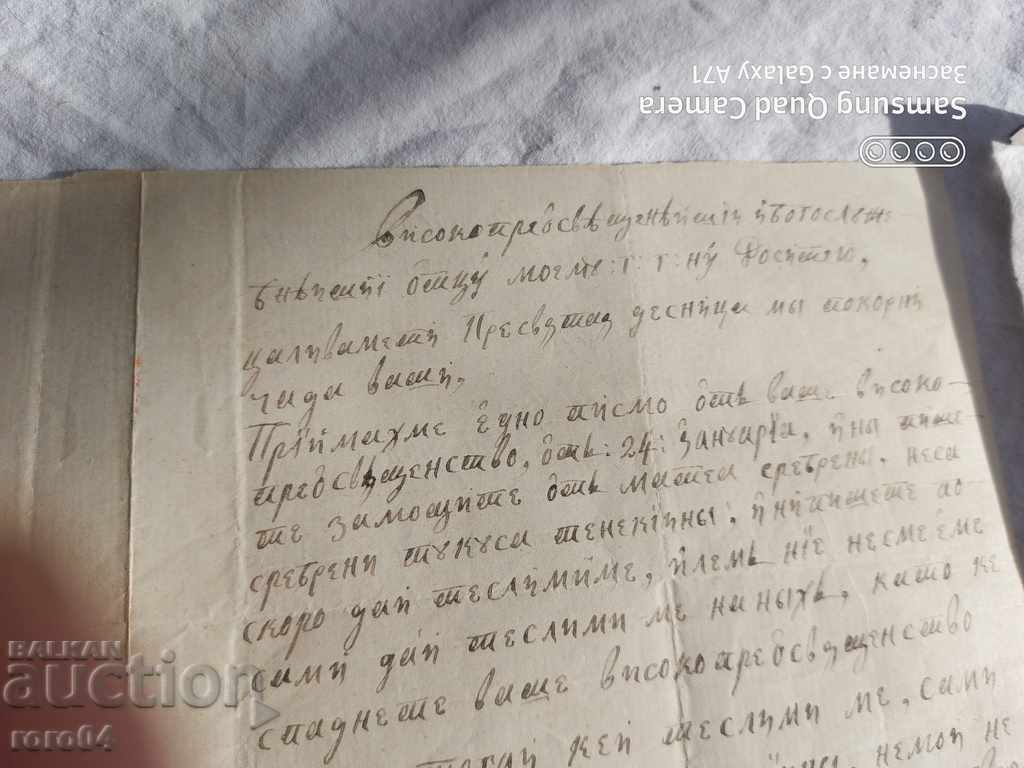 Samsung Quad Camera
Заснемане с Galaxy A71
Високопреѡсвѣщенѣйшій
ѡтцу моемъ: г: г: ну Доситею,
цалуваметй Пресвѧтаѧ десница мы покорнй
чада вашй,
Прїймахме едно писмо ѡтъ ваше високо-
преѡсвѧщенство, ѡтъ: 24: Їануарїа, и ны пише
те за мощите ѡтъ матеа сребрены. неса
сребрени тукуса тенекїины: и ни пишете
скоро дай теслимиме, нїе несмееме
сами дай теслими ме на ныхъ, като ке
спаднете ваше високопреѡсвѧщенство
тогай кей теслими ме, сами
немой не
BALKAN
auction
roro04